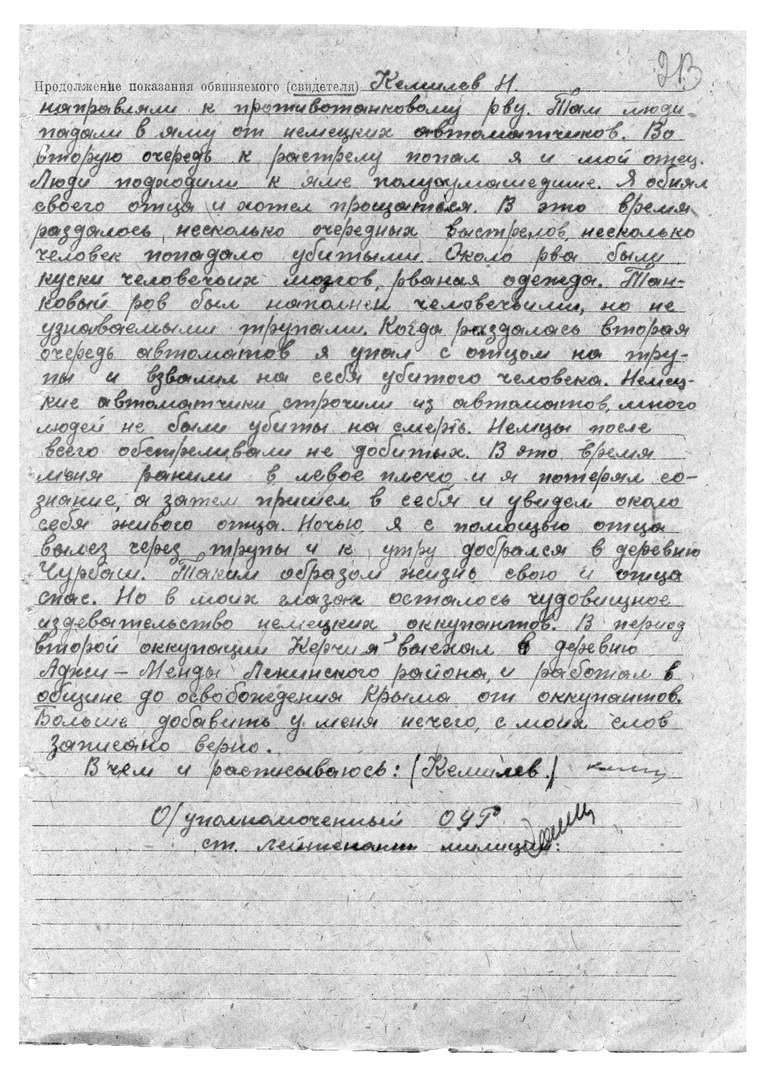 213
Продолжение показания обвиняемого (свидетеля) Кемилев Н.
направляли к противотанковому рву. Там люди
падали в яму от немецких автоматчиков. Во
вторую очередь к растрелу попал я и мой отец.
Люди подходили к яме полусумашедшие. Я обнял
своего отца и хотел прощаться. В это время
раздалось несколько очередных выстрелов, несколько
человек попадало убитыми. Около рва были
куски человечьих мозгов, рваная одежда. Тан-
ковый ров был наполнен человечьими, но не
узнаваемыми трупами. Когда раздалась вторая
очередь автоматов я упал с отцом на тру-
пы и взвалил на себя убитого человека. Немец-
кие автоматчики строчили из автоматов, много
людей не были убиты на смерть. Немцы после
всего обстреливали не добитых. В это время
меня ранили в левое плечо и я потерял со-
знание, а затем пришел в себя и увидел около
себя живого отца. Ночью я с помощью отца
вылез через трупы и к утру добрался в деревню
Чурбаш. Таким образом жизнь свою и отца
спас. Но в моих глазах осталось чудовищное
издевательство немецких оккупантов. В период
второй оккупации Керчи я выехал в деревню
Аджи-Менды Ленинского района, и работал в
общине до освобождения Крыма от оккупантов.
Больше добавить у меня нечего, с моих слов
записано верно.
В чем и расписываюсь: (Кемилев.)
О/уполномоченный ОУР
ст. лейтенант милиции: